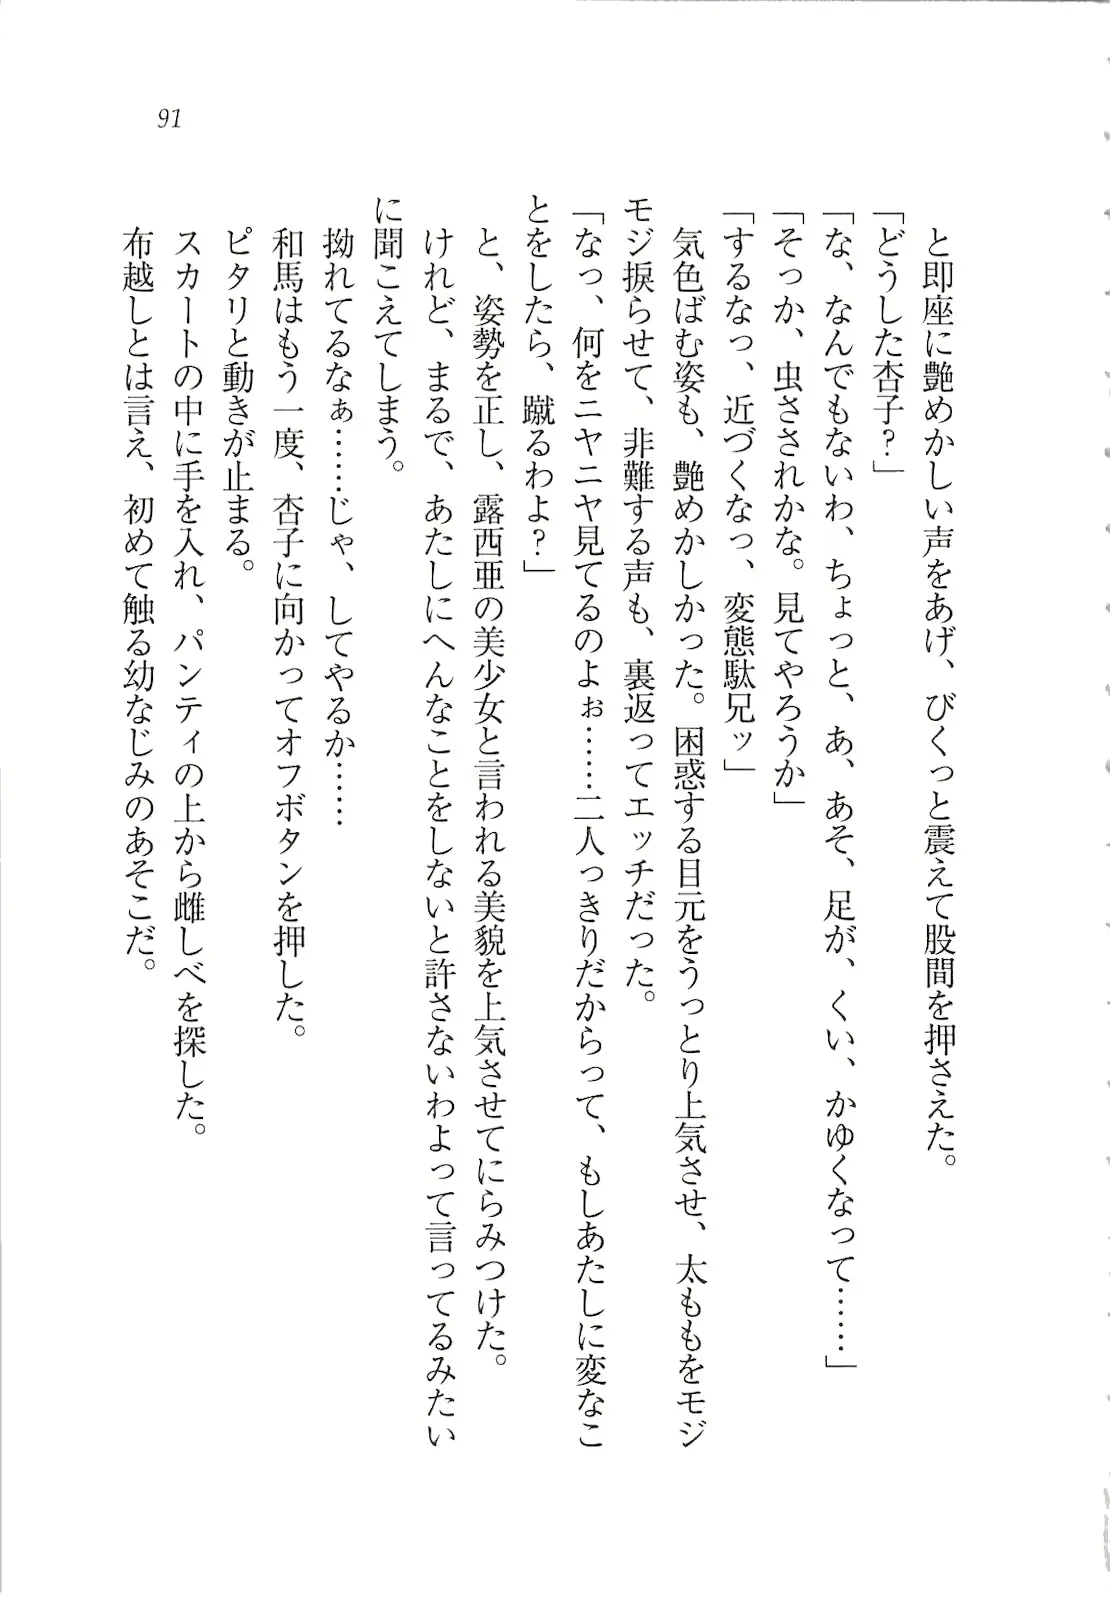 91
と即座に艶めかしい声をあげ、びくっと震えて股間を押さえた。
「どうした杏子?」
「な、なんでもないわ、ちょっと、あ、あそ、足が、くい、かゆくなって……」
「そっか、虫さされかな。見てやろうか」
「するなっ、近づくなっ、変態駄兄ッ」
気色ばむ姿も、艶めかしかった。困惑する目元をうっとり上気させ、太ももをモジ
モジ捩らせて、非難する声も、裏返ってエッチだった。
「なっ、何をニヤニヤ見てるのよぉ……二人っきりだからって、もしあたしに変なこ
とをしたら、蹴るわよ?」
と、姿勢を正し、露西亜の美少女と言われる美貌を上気させてにらみつけた。
けれど、まるで、あたしにへんなことをしないと許さないわよって言ってるみたい
に聞こえてしまう。
拗れてるなぁ……じゃ、してやるか……
和馬はもう一度、杏子に向かってオフボタンを押した。
ピタリと動きが止まる。
スカートの中に手を入れ、パンティの上から雌しべを探した。
布越しとは言え、初めて触る幼なじみのあそこだ。